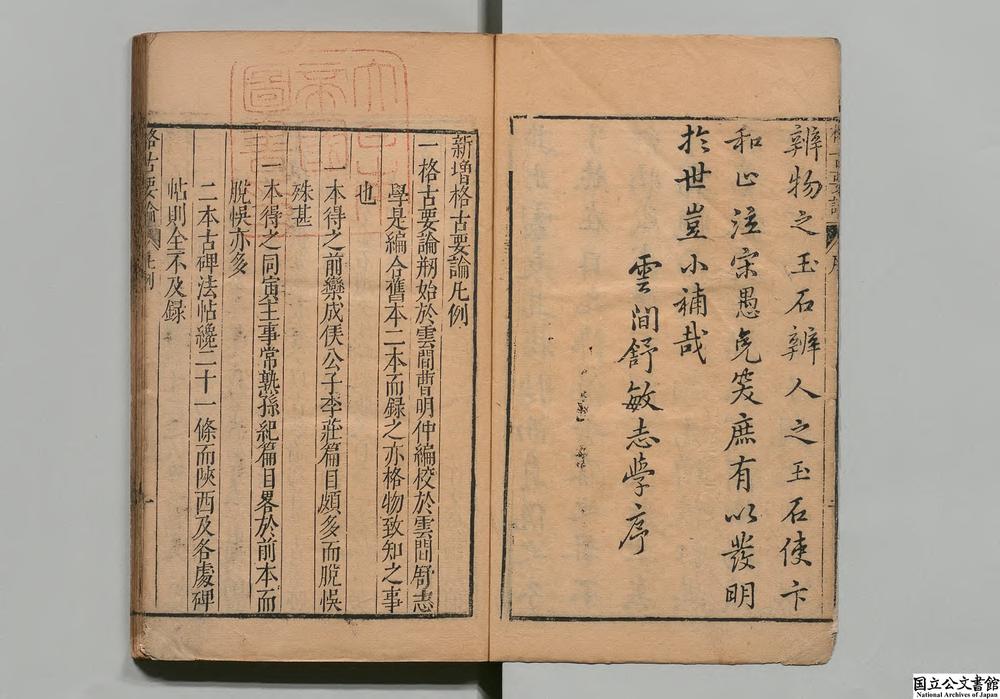 辨物之玉石辨人之玉石使卞
和止泣宋愚免笑庶有以發明
於世豈小補哉
雲間舒敏志學序
新増格古要論凡例
一格古要論剏始於雲間曹明仲編校於雲間舒志
學是編合舊本二本而録之亦格物致知之事
也
一本得之前欒成侯公子李莊篇目頗多而脫悞
殊甚
一本得之同寅主事常熟孫紀篇目畧於前本而
脫悞亦多
二本古碑法帖纔二十一條而陝西及各處碑
帖則全不及録
格古要論
凡例
一
国立公文書館
National Archives of Japan